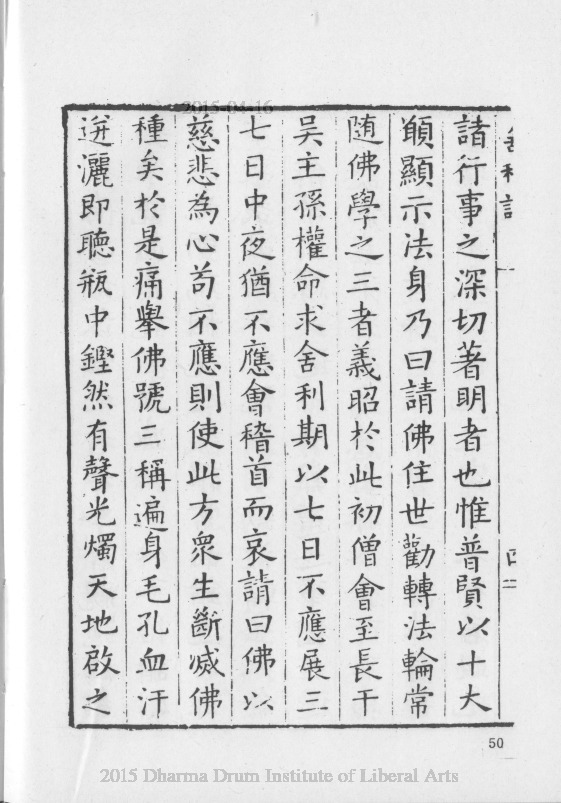 2015-04-16
諸行事之深切著明者也惟普賢以十大
願顯示法身乃曰請佛住世勸轉法輪常
随佛學之三者義昭於此初僧會至長干
吴主孫權命求舍利期以七日不應展三
七日中夜猶不應會稽首而哀請曰佛以
慈悲為心苟不應則使此方衆生斷滅佛
種矣於是痛舉佛號三稱遍身毛孔血汗
迸灑即聽瓶中鏗然有聲光燭天地啟之
50
2015 Dharma Drum Institute of Liberal Arts